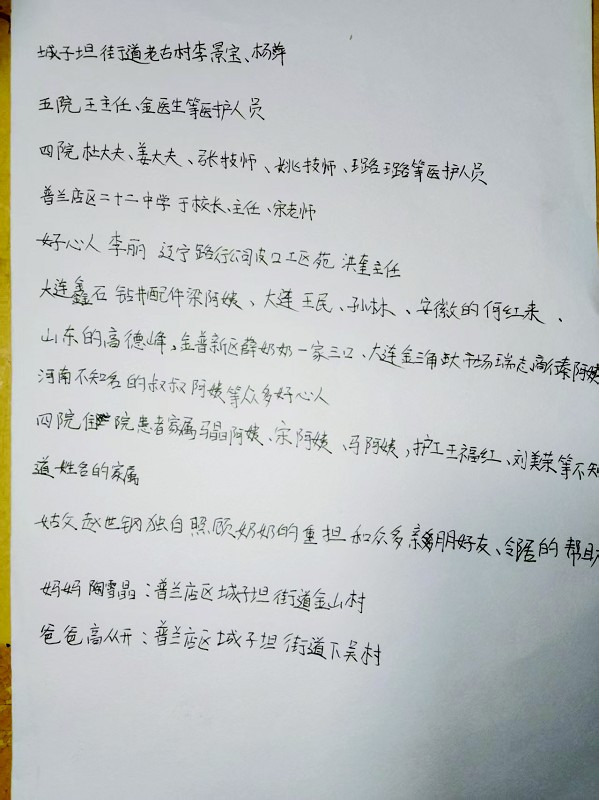 城子坦街道老古村李景宝、杨萍
五院王主任、金医生等医护人员
四院杜大夫、姜大夫、张技师、姚技师、璐璐等医护人员
普兰店区二十二中学于校长、主任、宋老师
好心人 李丽 辽宁路行公司皮口工区苑洪奎主任
大连鑫石钻井配件梁阿姨、大连王民、孙林、安徽的何红来、
山东的高德峰,金普新区薛奶奶一家三口、大连金三角大市场瑞志商行秦阿姨
河南不知名的叔叔阿姨等众多好心人
四院住院患者家属马晶阿姨、宋阿姨、马阿姨,护工王福红、刘美荣等不知
道姓名的家属
姑父赵世钢独自照顾奶奶的重担和众多亲朋好友、邻居的帮助
妈妈陶雪晶:普兰店区城子坦街道金山村
爸爸高从开:普兰店区城子坦街道下吴村